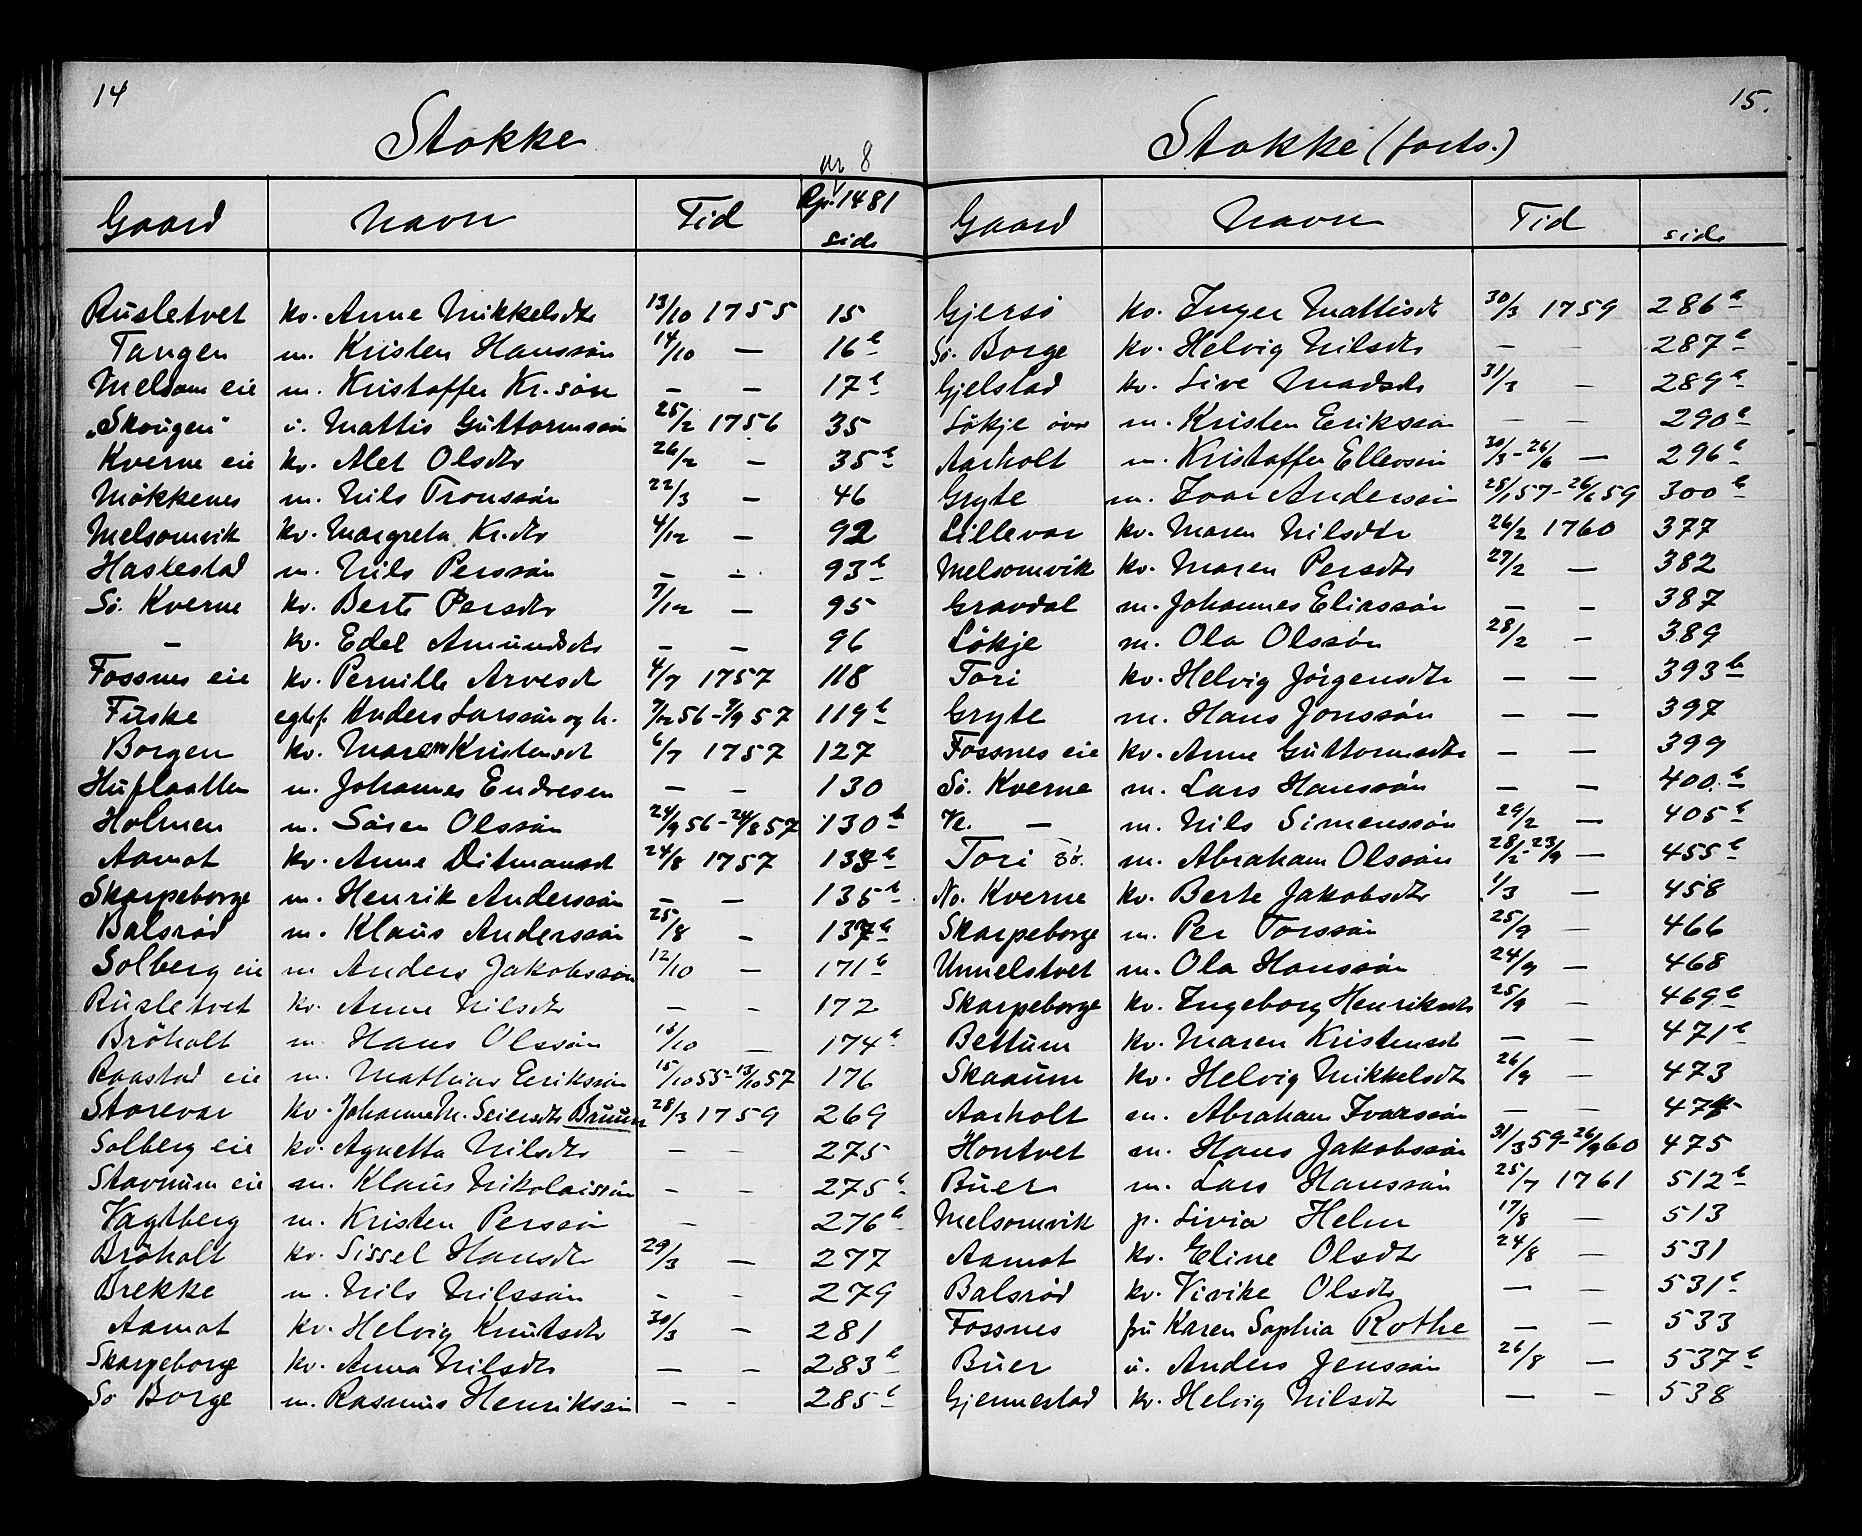 14
Stokke
nr 8
Gaard Navn Tid Rpr. 1481 side
Rusletvet kv. Anne Mikkelsdtr 13/10 1755 15
Tangen m. Kristen Hanssøn 14/10 — 16 b
Melsom eie m. Kristoffer Kr.søn — — 17 b
„Skougen" u. Mattis Guttormsøn 25/2 1756 35
Kverne eie kv. Alet Olsdtr 26/2 — 35 b
Møkkenes m. Nils Tronssøn 22/3 — 46
Melsomvik kv. Margreta Kr.dtr 4/12 — 92
Hastestad m. Nils Perssøn — — 93 b
Sø. Kverne kv. Berte Persdtr 7/12 — 95
— kv. Edel Amundsdtr — — 96
Fossnes eie kv. Pernille Arvesdtr 4/7 1757 118
Fuske egtef. Anders Larssøn og h. 7/12 56 - 7/9 57 119 b
Borgen kv. Maren Kristensdt 6/7 1757 127
Huflaatten m. Johannes Endresen — — 130
Holmen m. Søren Olssøn 24/9 56 - 24/8 57 130 b
Aamot kv. Anne Ditmansdt 24/8 1757 133 b
Skarpeborge m. Henrik Anderssøn — — 135 b
Balsrød m. Klaus Anderssøn 25/8 — 137 b
Solberg eie m Anders Jakobssøn 12/10 — 171 b
Rusletvet kv. Anne Nilsdtr — — 172
Brøholt m. Hans Olssøn 13/10 — 174 b
Raastad eie m. Mathias Erikssøn 15/10 55 - 13/10 57 176
Storevar kv. Johanne M. Seiersdtr Bruun 28/3 1759 269
Solberg eie kv. Agnetta Nilsdtr — — 275
Stavnum eie m. Klaus Nikolaissøn — — 275 b
Vagtberg m. Kristen Perssøn — 276 b
Brøholt kv. Sissel Hansdtr 29/3 — 277
Brekke m. Nils Nilssøn — — 279
Aamot kv. Helvig Knutsdtr 30/3 — 281
Skarpeborge kv. Anna Nilsdtr — — 283 b
Sø Borge m. Rasmus Henrikssøn — — 285 b
15.
Stokke (forts.)
Gaard Navn Tid side
Gjersø kv. Inger Mattisdt 30/3 1759 286 b
Sø. Borge kv. Helvig Nilsdtr — — 287 b
Gjelstad kv. Live Madsdtr 31/3 — 289 b
Løkje øvr m. Kristen Erikssøn — — 290 b
Aarholt m. Kristoffer Ellevsøn 30/3 - 26/6 — 296 b
Gryte m. Ivar Anderssøn 25/1 57 - 26/2 59 300 b
Lillevar kv. Maren Nilsdtr 26/2 1760 377
Melsomvik kv. Maren Persdtr 27/2 — 382
Gravdal m. Johannes Eliassøn — — 387
Løkje m. Ola Olssøn 28/2 — 389
Tori kv. Helvig Jørgensdtr — — 393 b
Gryte m. Hans Jonssøn — — 397
Fossnes eie kv. Anne Guttormsdtr — — 399
Sø. Kverne m. Lars Hanssøn — — 400 b
Ve. — m. Nils Simenssøn 29/2 — 405 b
Tori sø. m. Abraham Olssøn 28/2 - 23/9 — 455 b
No. Kverne kv. Berte Jakobsdtr 1/3 — 458
Skarpeborge m. Per Torssøn 25/9 — 466
Unnelstvet m. Ola Hanssøn 24/9 — 468
Skarpeborge kv. Ingeborg Henriksdtr 25/9 — 469 b
Bettum kv. Maren Kristensdt — — 471 b
Skaaum kv. Helvig Mikkelsdtr 26/9 — 473
Aarholt m. Abraham Ivarssøn — — 474
Hontvet m. Hans Jakobssøn 31/3 59 - 26/9 60 475
Buer m. Lars Hanssøn 25/7 1761 512 b
Melsomvik p. Livia Helm 17/8 — 513
Aamot kv. Eline Olsdtr 24/8 — 531
Balsrød kv. Vivike Olsdtr — — 531 b
Fossnes fru Karen Sophia Rothe — — 533
Buer u. Anders Jenssøn 26/8 — 537 b
Gjennestad kv. Helvig Nilsdtr — — 538